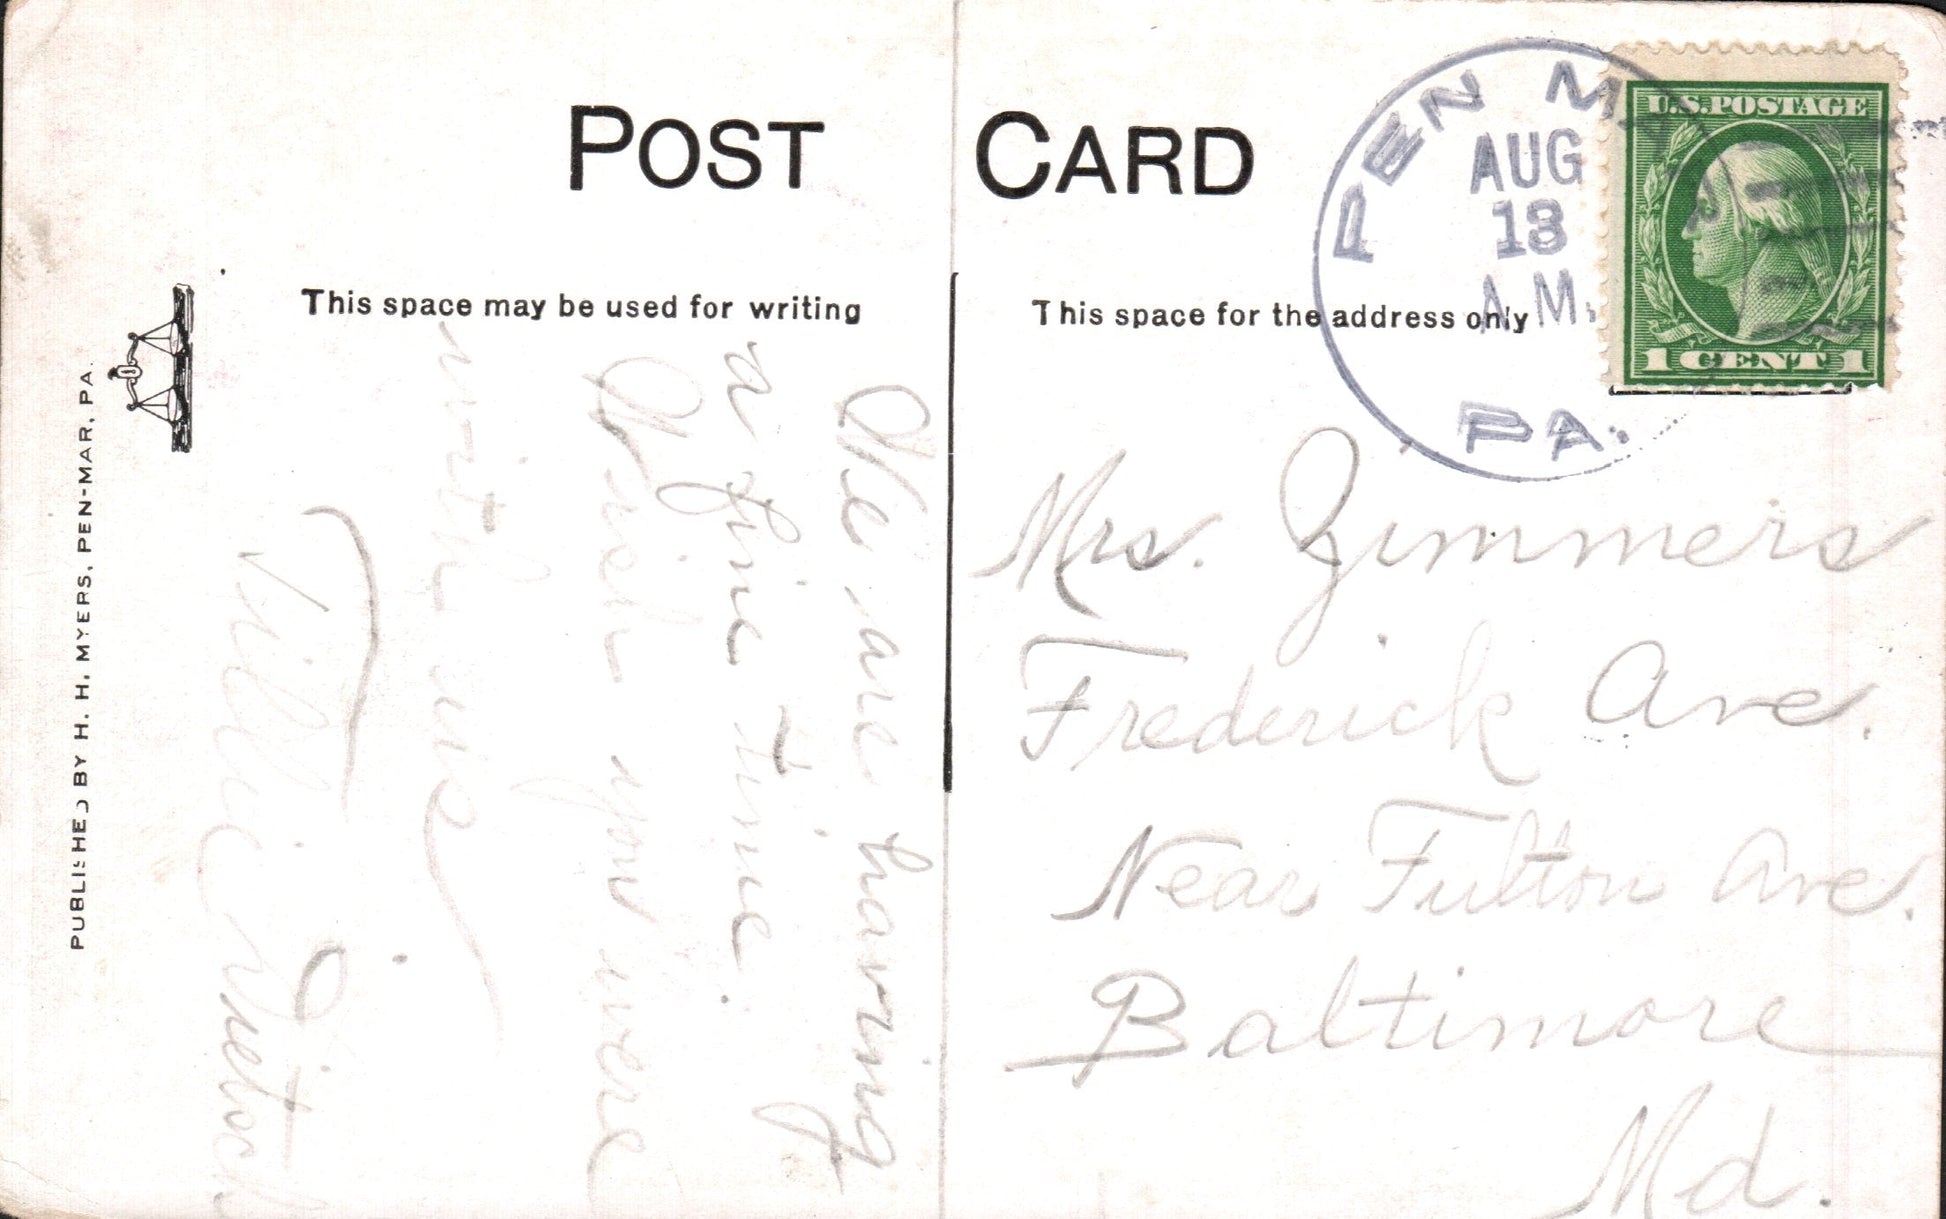 POST CARD
This space may be used for writing
This space for the address only
PEN MAR
AUG
13
A.M.
PA.
U.S. POSTAGE
1 CENT 1
PUBLISHED BY H. H. MYERS, PEN-MAR, PA.
We are having
a fine time.
Wish you were
with us
Tillie
Mrs. Zimmers
Frederick Ave.
Near Fulton Ave.
Baltimore
Md.